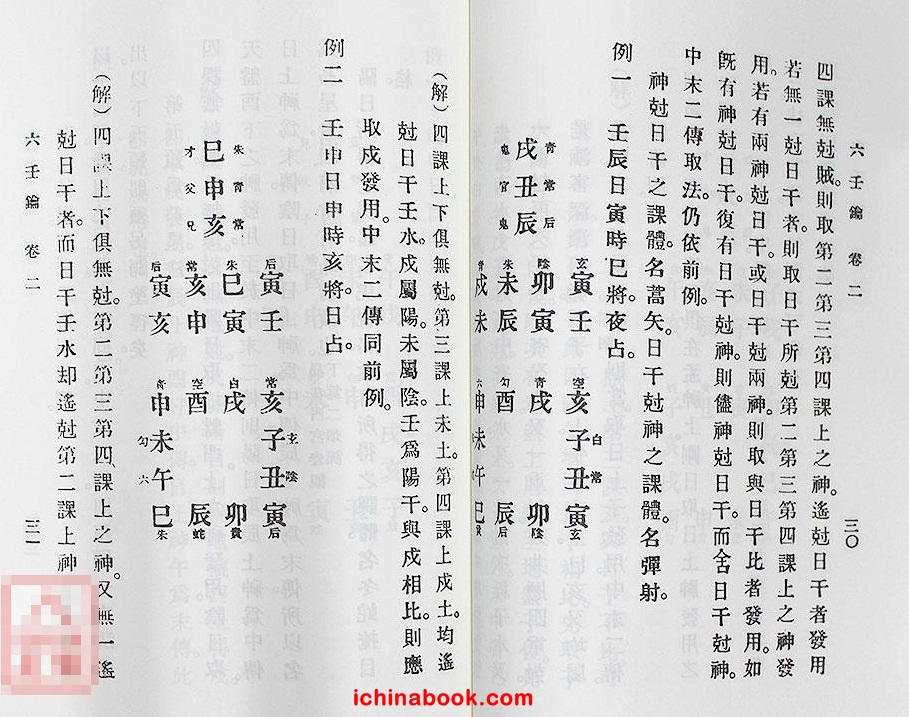 六壬鑰 卷二 三〇
四課無尅賊。則取第二第三第四課上之神。遙尅日干者發用
若無一尅日干者。則取日干所尅第二第三第四課上之神發
用。若有兩神尅日干。或日干尅兩神。則取與日干比者發用。如
旣有神尅日干。復有日干尅神。則儘神尅日干。而舍日干尅神。
中末二傳取法。仍依前例。
神尅日干之課體。名蒿矢。日干尅神之課體。名彈射。
例一 壬辰日寅時巳將。夜占。
青 常 后
戌 丑 辰
鬼 官 鬼
玄 陰 朱 青
寅 卯 未 戌
壬 寅 辰 未
空 白 常 玄
亥 子 丑 寅
青 戌 卯 陰
勾 酉 辰 后
六 申 未 午 巳
(解) 四課上下俱無尅。第三課上未土。第四課上戌土。均遙
尅日干壬水。戌屬陽。未屬陰。壬爲陽干。與戌相比。則應
取戌發用。中末二傳同前例。
例二 壬申日申時亥將。日占。
朱 青 常
巳 申 亥
才 父 兄
后 朱 常 后
寅 巳 亥 寅
壬 寅 申 亥
常 玄 陰 后
亥 子 丑 寅
白 戌 卯 貴
空 酉 辰 蛇
青 勾 六 朱
申 未 午 巳
(解) 四課上下俱無尅。第二第三第四課上之神。又無一遙
尅日干者。而日干壬水却遙尅第二課上神
六壬鑰 卷二 三一
ichinabook.com